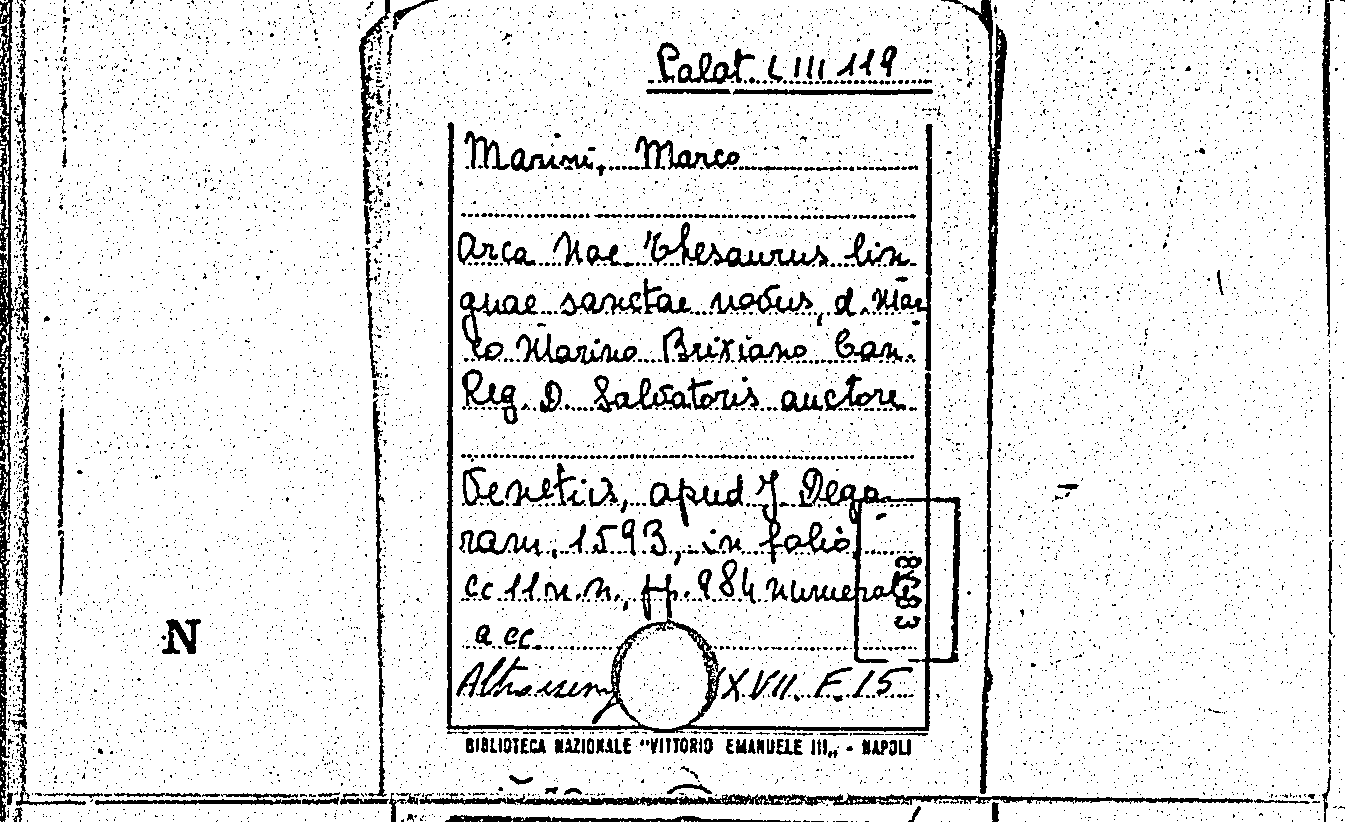 Palat. L III 119
Marini, Marco
Arca Noe Thesaurus lin
guae sanctae novus, d. Mar
co Marino Brixiano Can.
Reg. D. Salvatoris auctore
Venetiis, apud J. Dega
ram, 1593, in folio,
cc 11 n.n., pp. 884 numerate
a cc.
XVII. F. 15
8683
N
BIBLIOTECA NAZIONALE "VITTORIO EMANUELE III„ - NAPOLI